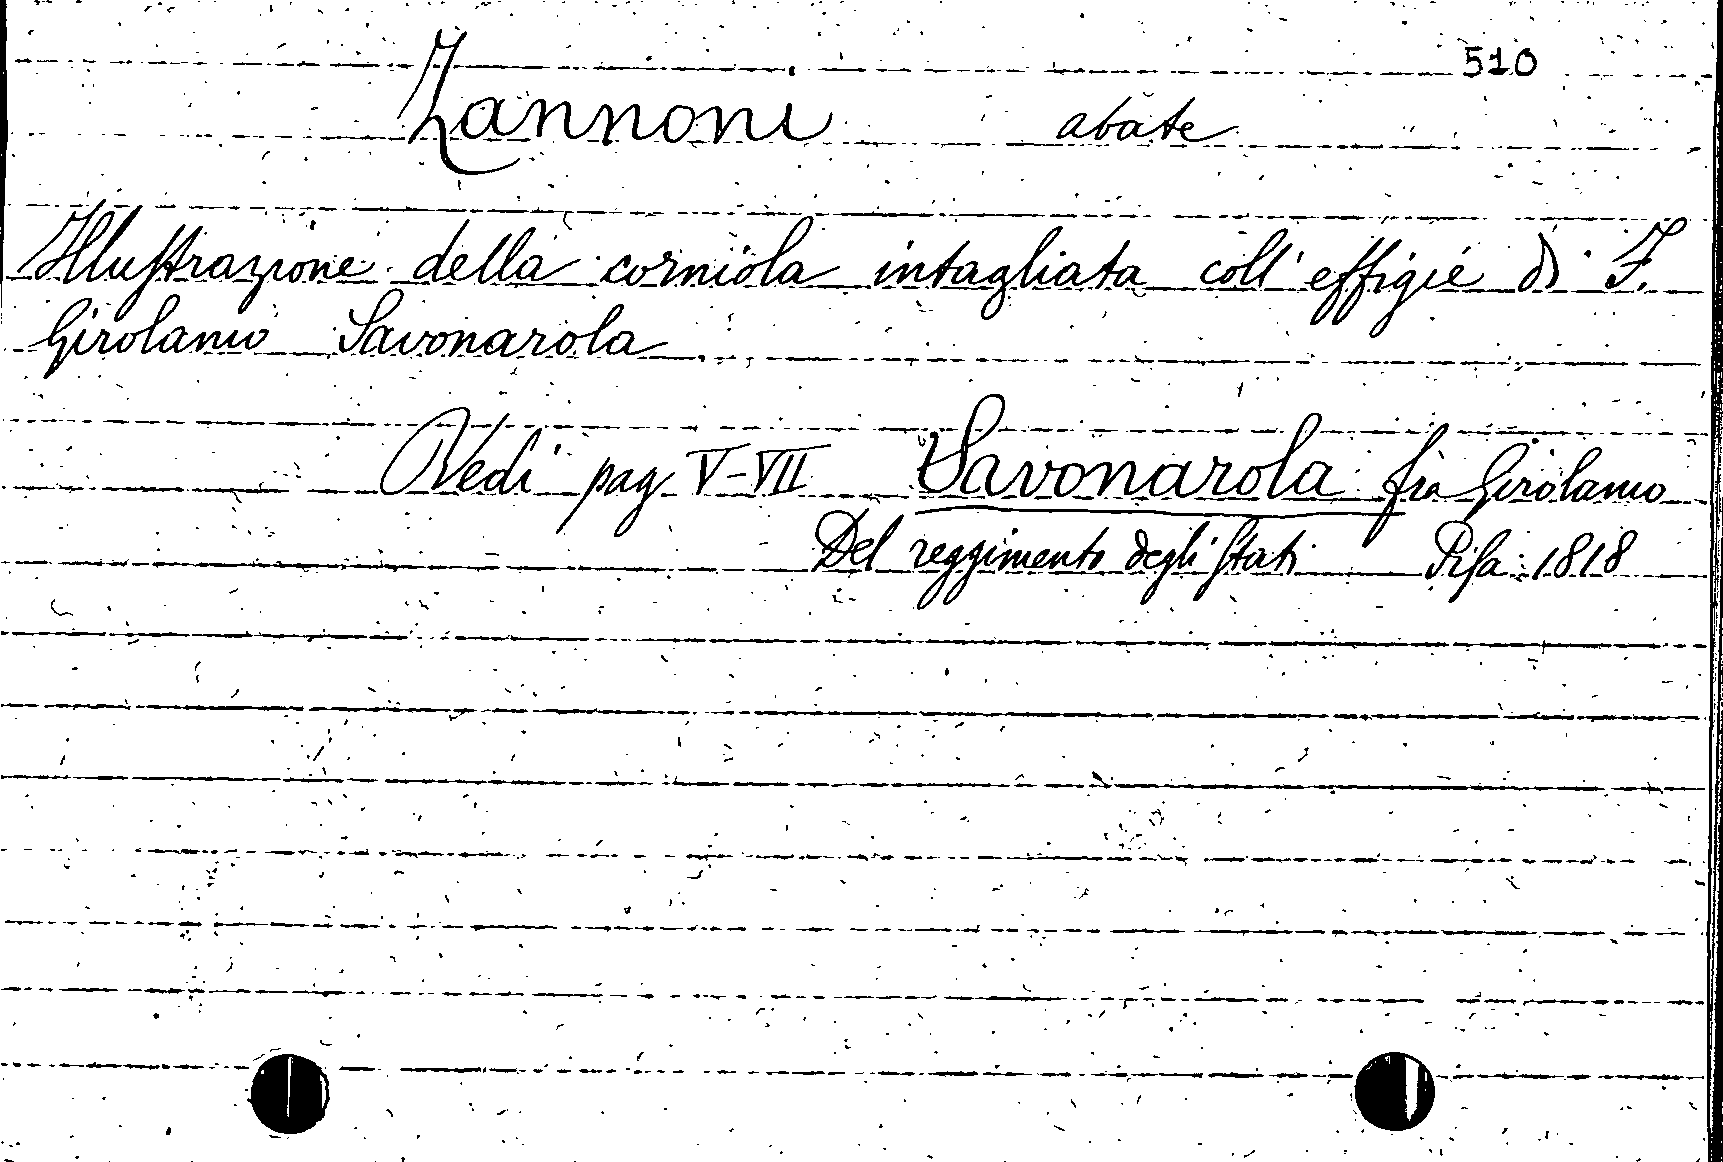 510
Zannoni abate
Illustrazione della corniola intagliata coll'effigie di F.
Girolamo Savonarola
Vedi pag V-VII Savonarola fra Girolamo
Del reggimento degli Stati Pisa 1818